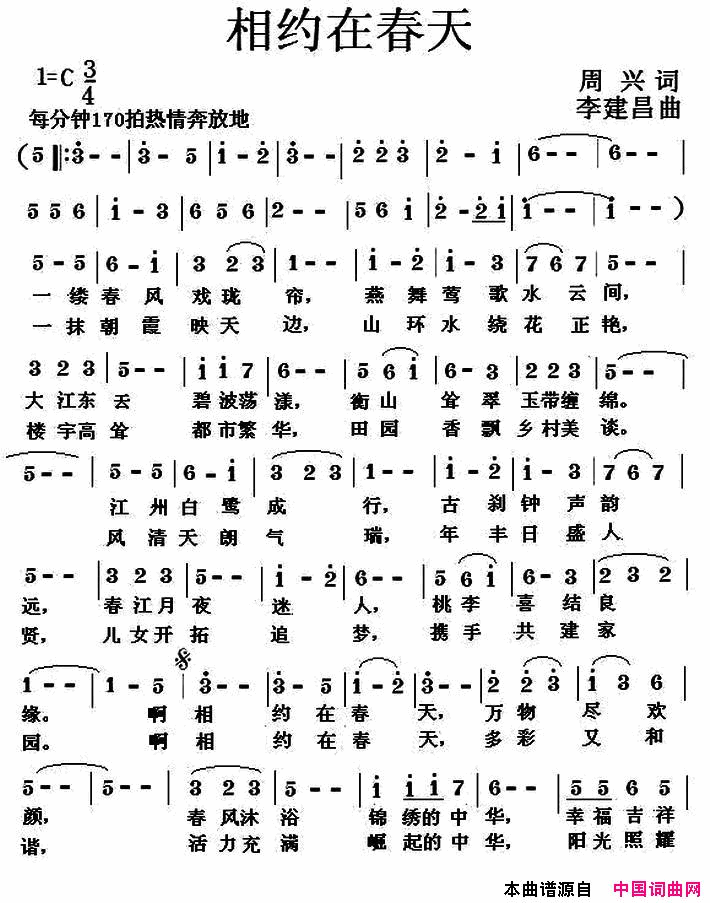 相约在春天
1=C 3/4
周兴词
每分钟170拍热情奔放地
李建昌曲
(5 ‖: 3 - - | 3 - 5 | 1 - 2 | 3 - - | 2 2 3 | 2 - 1 | 6 - - | 6 - - |
5 5 6 | 1 - 3 | 6 5 6 | 2 - - | 5 6 1 | 2 - 2 1 | 1 - - | 1 - - )
5 - 5 | 6 - 1 | 3 2 3 | 1 - - | 1 - 2 | 1 - 3 | 7 6 7 | 5 - - |
一缕春风戏珑帘, 燕舞莺歌水云间,
一抹朝霞映天边, 山环水绕花正艳,
3 2 3 | 5 - - | 1 1 7 | 6 - - | 5 6 1 | 6 - 3 | 2 2 3 | 5 - - |
大江东去 碧波荡漾, 衡山耸翠玉带缠绵。
楼宇高耸 都市繁华, 田园香飘乡村美谈。
5 - - | 5 - 5 | 6 - 1 | 3 2 3 | 1 - - | 1 - 2 | 1 - 3 | 7 6 7 |
江州白鹭成行, 古刹钟声韵
风清天朗气瑞, 年丰日盛人
5 - - | 3 2 3 | 5 - - | 1 - 2 | 6 - - | 5 6 1 | 6 - 3 | 2 3 3 |
远, 春江月夜迷人, 桃李喜结良
贤, 儿女开拓追梦, 携手共建家
1 - - | 1 - 5 | 3 - - | 3 - 5 | 1 - 2 | 3 - - | 2 2 3 | 1 3 6 |
缘。 啊相约在春天, 万物尽欢
园。 啊相约在春天, 多彩又和
5 - - | 5 - - | 3 2 3 | 5 - - | 1 1 1 7 | 6 - - | 5 5 6 5 |
颜, 春风沐浴 锦绣的中华, 幸福吉祥
谐, 活力充满 崛起的中华, 阳光照耀
本曲谱源自 中国词曲网